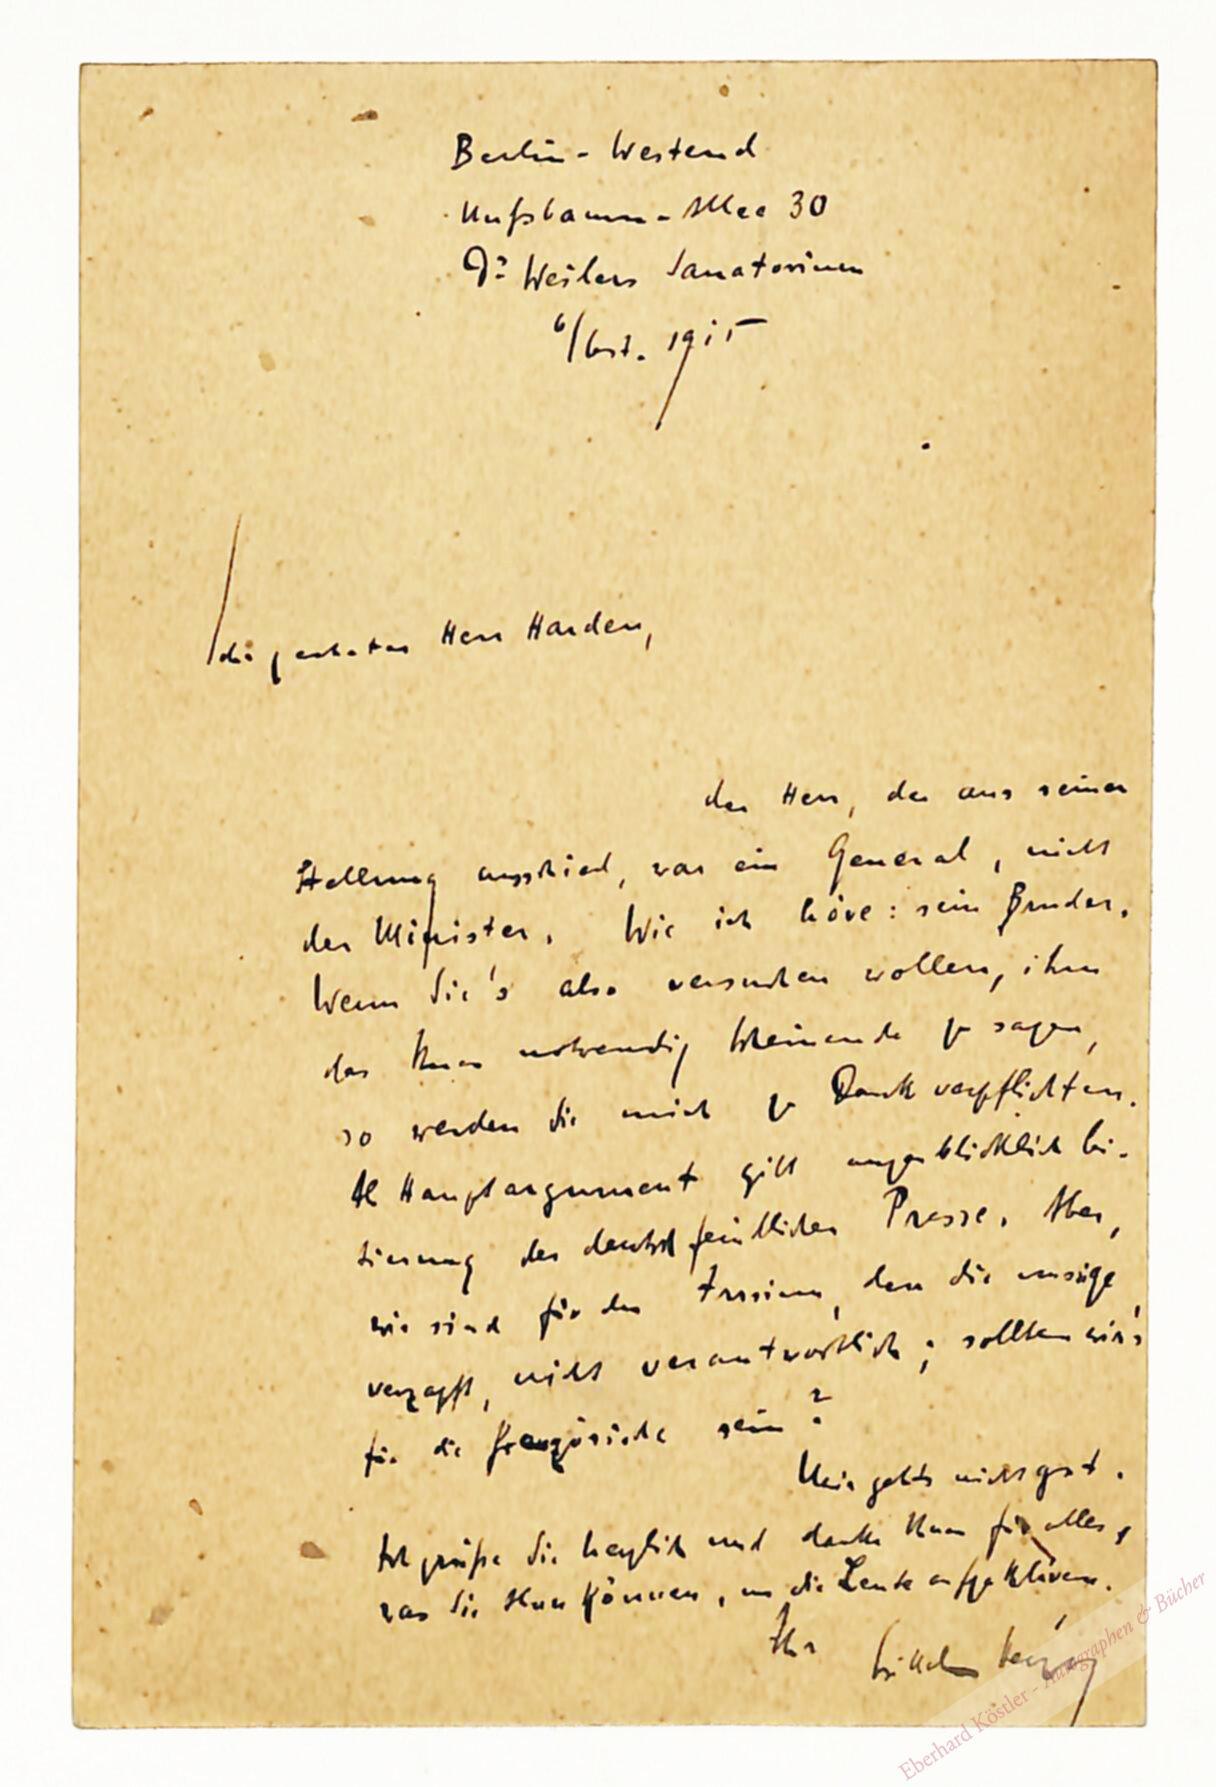 Berlin-Westend
Nußbaum-Allee 30
Dr Weilers Sanatorium
6/Oct. 1915
Sie geehrter Herr Harden,
der Herr, der aus seiner
Stellung ausschied, war ein General, nicht
der Minister. Wie ich höre: sein Bruder.
Wenn Sie's also versuchen wollen, ihm
das Ihnen notwendig Scheinende zu sagen,
so werden Sie mich zu Dank verpflichten.
Als Hauptargument gilt augenblicklich Zi-
tierung der deutschfeindlichen Presse. Aber,
wir sind für den Irrsinn, den die unsrige
verzapft, nicht verantwortlich; sollten wir's
für die französische sein?
Mir gehts nicht gut.
Ich grüße Sie herzlich und danke Ihnen für alles,
was Sie thun können, um die Leute aufzuklären.
Ihr Wilhelm Herzog
Eberhard Köstler - Autographen & Bücher